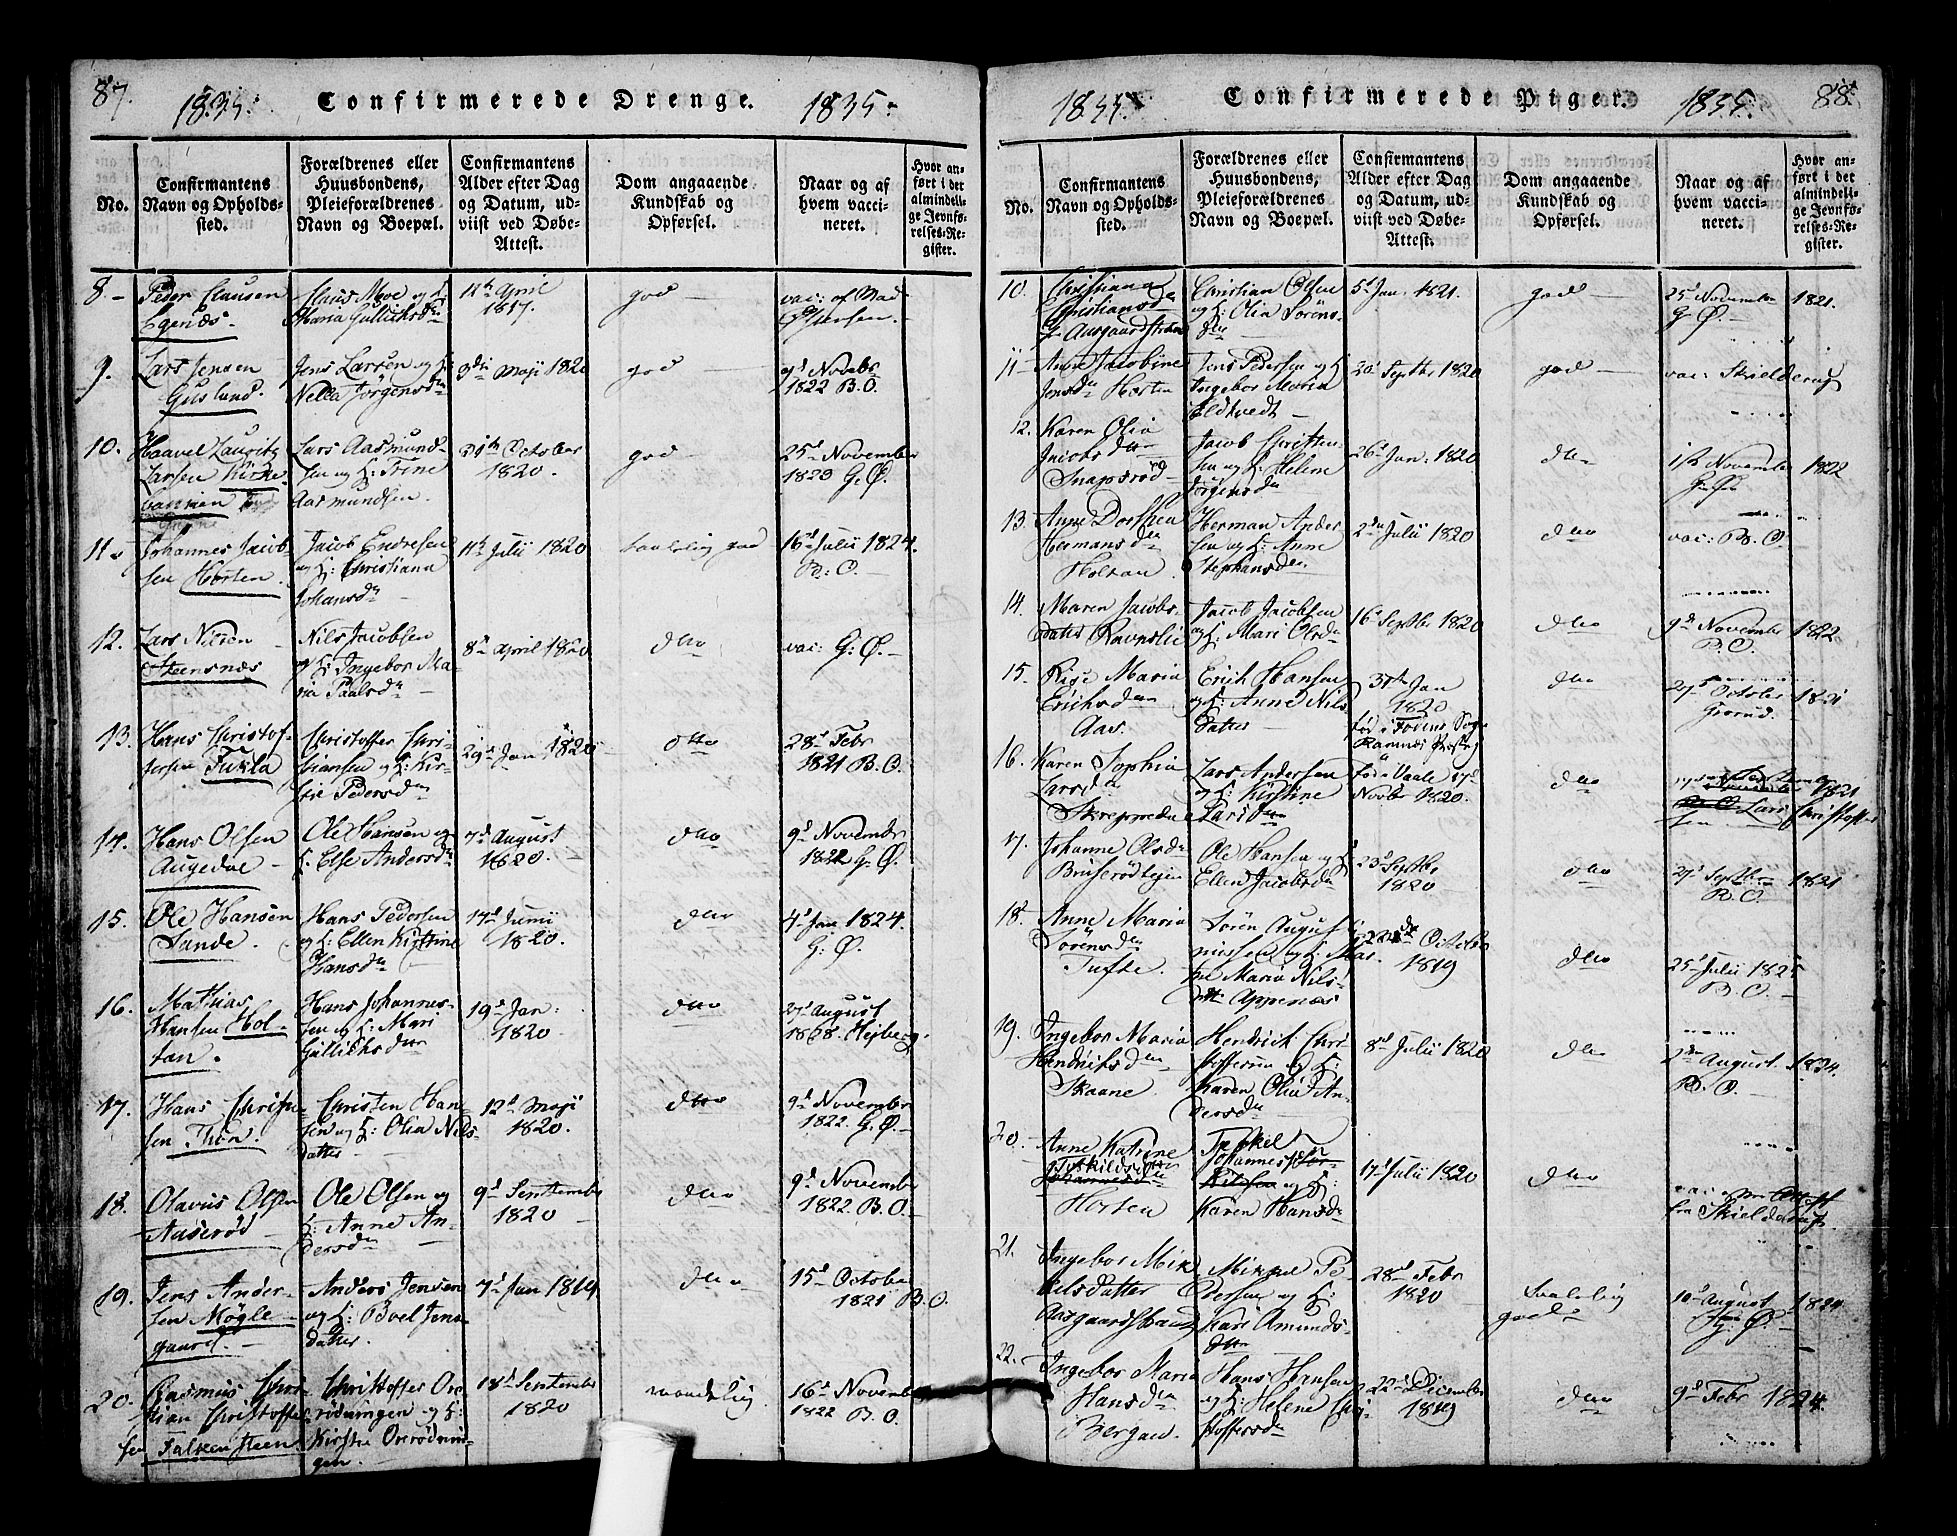 87.
1835.
Confirmerede Drenge.
1835.
No.
Confirmantens
Navn og Opholds-
sted.
Forældrenes eller
Huusbondens,
Pleieforældrenes
Navn og Boepæl.
Confirmantens
Alder efter Dag
og Datum, ud-
viist ved Døbe-
Attest.
Dom angaaende
Kundskab og
Opførsel.
Naar og af
hvem vacci-
neret.
Hvor an-
ført i det
almindeli-
ge Jevnfø-
relses-Re-
gister.
8.
Peder Clausen
Egenæs.
Claus Moe og H:
Maria Gullichsdr
11te April
1817.
god
vac: af Mad
9.
Lars Jensen
Guslund.
Jens Larsen og H:
Nella Jørgensdr
3die Maji 1820
god
9d Novebr
1822 B.O.
10.
Haavel Lauritz
Larsen Kirke-
Lars Aasmund-
sen og H: Trine
Aasmundsen.
October
1820.
god
25d November
1823 G.Ø.
11.
Johannes Jacob-
sen Horten.
Jacob Endresen
og H: Christiana
Johansdr
11te Julii 1820
taalelig god
16d Julii 1824.
B. O.
12.
Lars Nilsen
Steensnæs
Nils Jacobsen
og H: Ingebor Ma-
ria Paalsdr
8de April 1820
dtto
vac: G: Ø.
13.
Hans Christof-
fersen Fuxla
Christoffer Chri-
stiansen og H: Kir-
stie Pedersdr
29d Jan 1820
dtto
28d Febr
1821 B.O.
14.
Hans Olsen
Augedal
Ole Hansen og
H: Else Andersdr
7d August
1820.
dtto
9d Novembr
1822 G.Ø.
15.
Ole Hansen
Sande.
Hans Pedersen
og H: Ellen Kistine
Hansdr
17d Junii
1820.
dtto
4d Jan 1824.
G: Ø.
16.
Mathias
Hansen Hol-
tan.
Hans Johannes-
sen og H: Mari
Gullichsdr
19d Jan:
1820.
dtto
27d August
1828. Hejberg.
17.
Hans Christen-
sen Thon.
Christen Han-
sen og H: Olia Nils-
datter
12d Maji
1820.
dtto
9d November
1822. G.Ø.
18.
Olavus Olsen
Aaserød
Ole Olsen og
H: Anne An-
dersdr
9d Septembr
1820
dtto
9d November
1822. B.O.
19.
Jens Ander-
sen Møgle-
gaard.
Anders Jensen
og H: Boel Jens-
datter.
7d Jan 1819.
dtto
15d October
1821 B.O.
20.
Rasmus Chri-
stian Christoffer-
sen Falkensteen
Christoffer Ore-
rødningen og H:
Kirstie Orerødnin-
gen
18d Septembr
1820
maadelig
16d November
1822 B.O.
1835.
Confirmerede Piger.
1835.
88.
No.
Confirmantens
Navn og Opholds-
sted.
Forældrenes eller
Huusbondens,
Pleieforældrenes
Navn og Boepæl.
Confirmantens
Alder efter Dag
og Datum, ud-
viist ved Døbe-
Attest.
Dom angaaende
Kundskab og
Opførsel.
Naar og af
hvem vacci-
neret.
Hvor an-
ført i det
almindeli-
ge Jevnfø-
relses-Re-
gister.
10.
Christiana
Christiansdr
Aasgaardstrand
Christian Olsen
og H: Olia Sørens-
dr
5d Jan. 1821.
god
25d November 1821.
G. Ø.
11.
Anne Jacobine
Jensdr Horten
Jens Pedersen og H:
Ingebor Maria
Eldtvedt
20d Septbr 1820
god
vac: Skielderup
12.
Karen Olia
Jacobsdtr
Snapsrød
Jacob Christen-
sen og H: Helene
Jørgensdr
26d Jan: 1820
dtto
November 1822
G. Ø.
13.
Anne Dorthea
Hermansdr
Holtan.
Herman Ander-
sen og H: Anne
Stephansdr
2den Julii 1820
dtto
vac: B. O.
14.
Maren Jacobs-
datter Ravnslie
Jacob Jacobsen
og H: Mari Olsdr
16d Septbr 1820
dtto
9d November 1822
B. O.
15.
Rise Maria
Erichsdr
Aas.
Erich Hansen
og H: Anne Nils-
datter
31te Jan
1820
fød i Fovens Sogn
Ramnæs
dtto
27d October 1821
Grorud.
16.
Karen Sophia
Larsdr
Lars Andersen
og H: Kirstine
Larsdr
fød i Vaale 17d
Novbr 1820.
dtto
1821
Lars Christoffer-
sen
17.
Johanne Olsdr
Bruserødlejen
Ole Hansen og H:
Ellen Jacobsdr
23d Septbr
1820
dtto
27d Septbr 1821
B. O.
18.
Anne Maria
Sørensdr
Tufte.
Søren Augusti-
nussen og H: Mar-
the Maria Nils-
dtr Appenæs
October
1819
dtto
25d Julii 1825
B. O.
19.
Ingebor Maria
Hendrichsdr
Skaane
Hendrich Chri-
stoffersen og H:
Karen Olia An-
dersdr
8de Julii 1820
dtto
2den August 1824.
B. O.
20.
Anne Katrine
Horten
Johannes
og H:
Karen Hansdr
17d Julii 1820
dtto
fra Skielderup.
21.
Ingebor Mik-
kelsdatter
Aasgaardstrand
Mikkel Pe-
dersen og H:
Kari Amunds-
dtr
28d Febr
1820
Taalelig
god
10d August 1824
G. Ø.
22.
Ingebor Maria
Hansdr
Bergan
Hans Hansen
og H: Helene Chri-
stoffersdr
22d December
1819
dtto
9d Febr 1824.